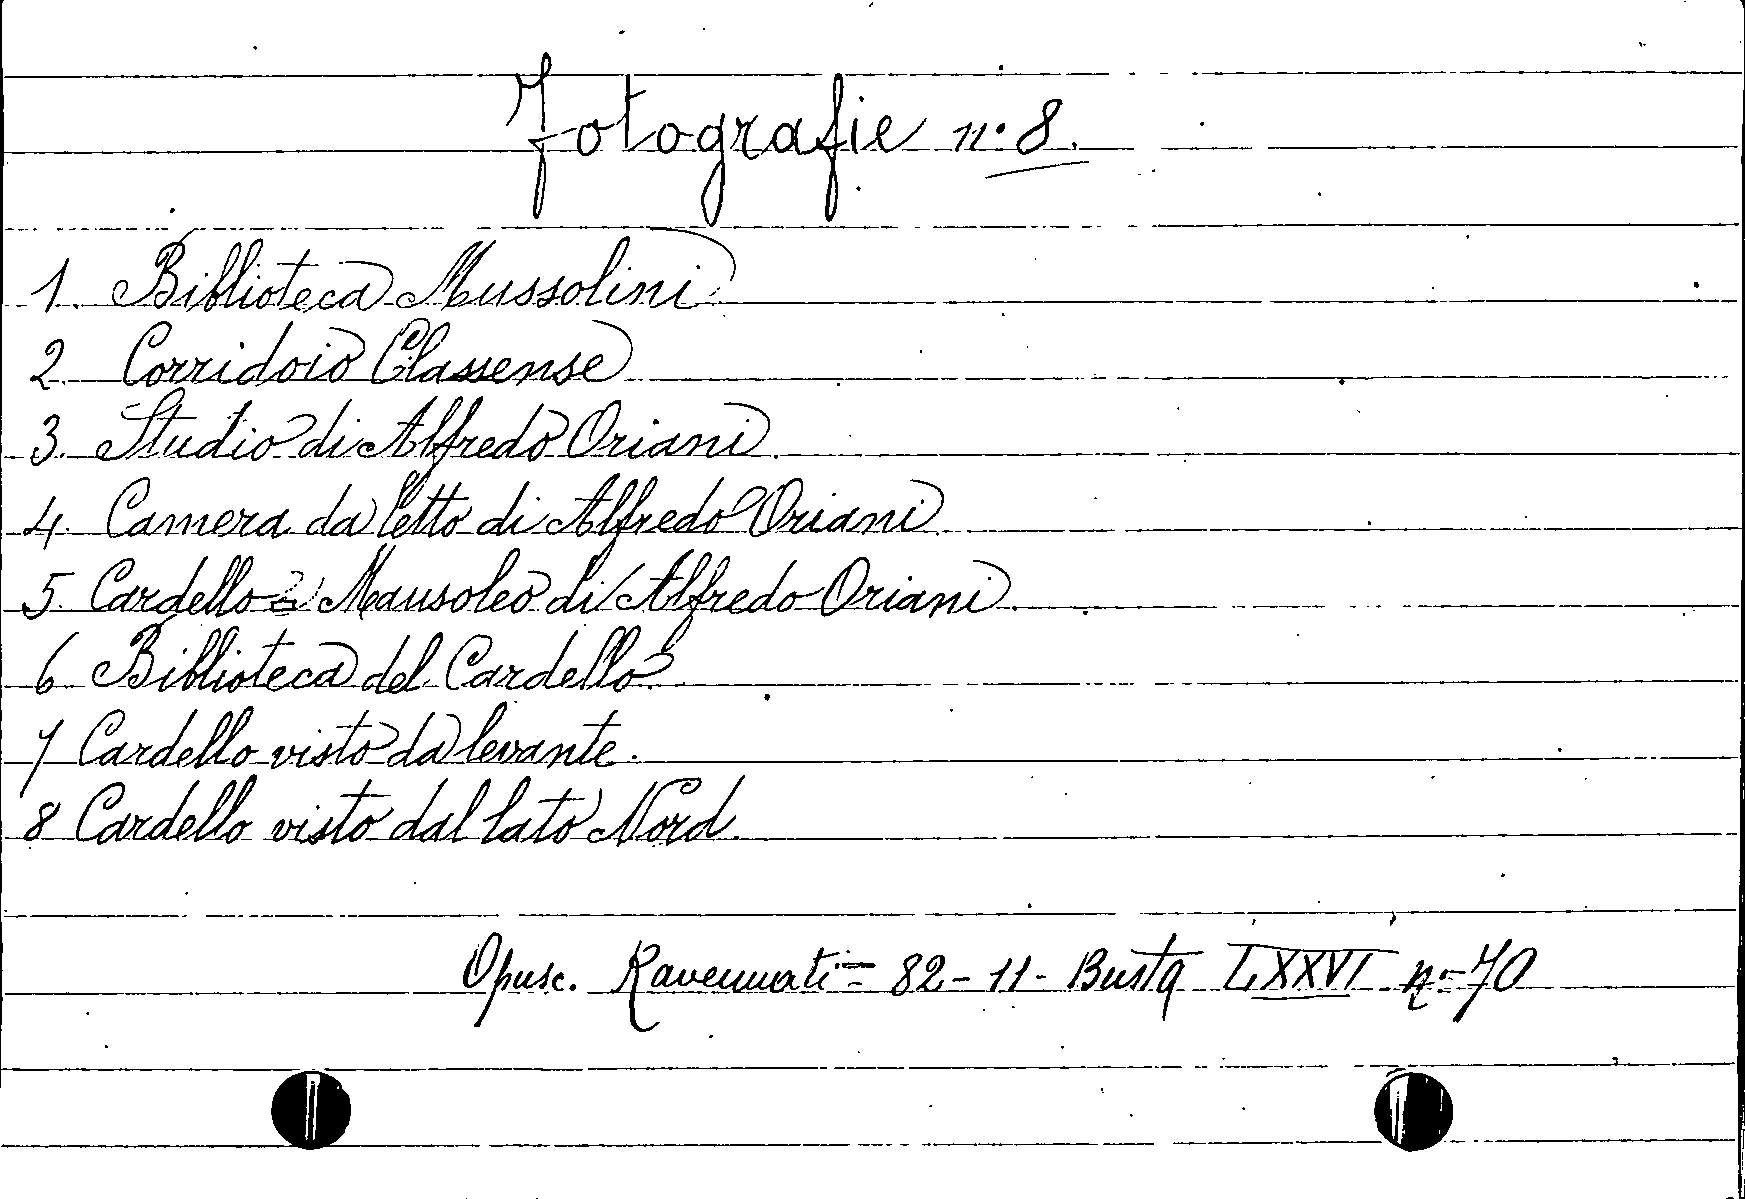 Fotografie n. 8.
1. Biblioteca Mussolini
2. Corridoio Classense
3. Studio di Alfredo Oriani
4. Camera da letto di Alfredo Oriani
5. Cardello e Mausoleo di Alfredo Oriani.
6 Biblioteca del Cardello
7 Cardello visto da levante.
8 Cardello visto dal lato Nord.
Opusc. Ravennati = 82 - 11 - Busta LXXVI n = 70